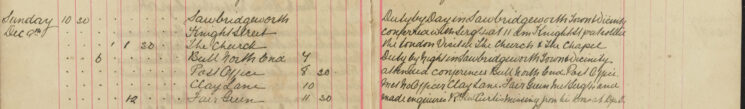 Sunday 10 30 Sawbridgeworth Duty by Day in Sawbridgeworth Town & Vicinity
Dec 9th Knight Street conference with Sergt at 11 am Knight St patrolled
1 1 30 The Church the London Visited The Church & The Chapel
6 Bull North End 7 Duty by night in Sawbridgeworth Town & Vicinity
Post Office 8 30 attended conferences Bull North End Post Office
Clay Lane 10 met No Officer Clay Lane Fair Green Met Sergt and
12 Fair Green 11 30 made inquiries Curtis missing from his home at